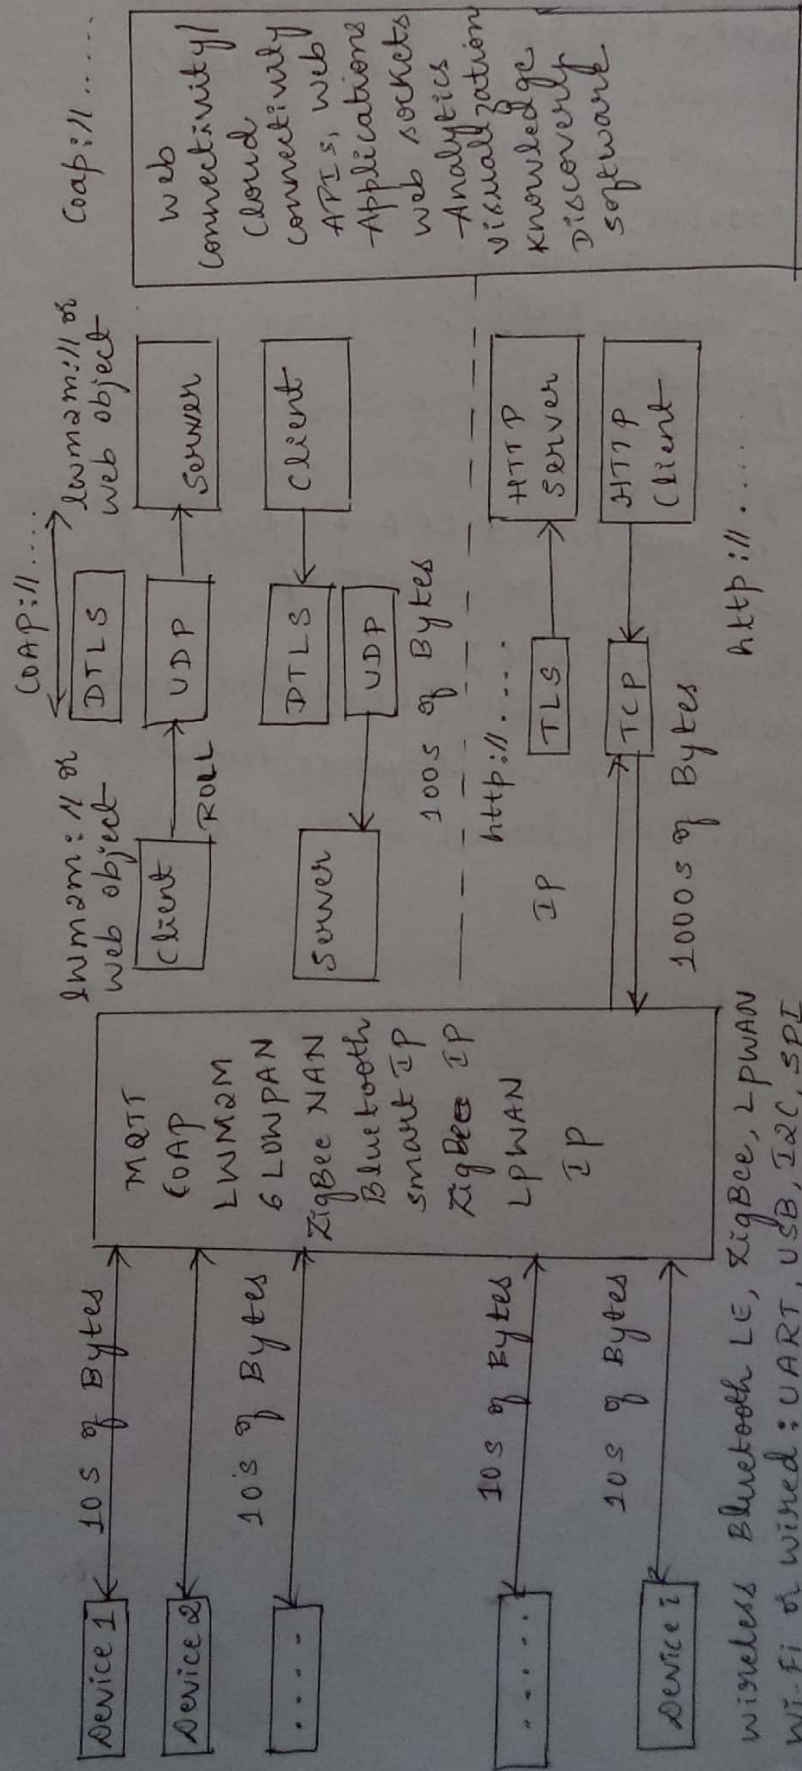 Device 1
Device 2
.....
......
Device i
10s of Bytes
10's of Bytes
10s of Bytes
10s of Bytes
wireless Bluetooth LE, ZigBee, LPWAN
Wi-Fi or wired : UART, USB, I2C, SPI
MQTT
COAP
LWM2M
6 LOWPAN
ZigBee NAN
Bluetooth
smart IP
ZigBee IP
LPWAN
IP
lwm2m : // or
web object
COAP://....
lwm2m:// or
web object
Client
ROLL
DTLS
UDP
Server
Server
DTLS
UDP
Client
100s of Bytes
http://....
IP
TLS
HTTP
Server
TCP
HTTP
Client
1000s of Bytes
http://....
Coap://.....
Web
connectivity/
Cloud
connectivity
APIs, Web
-Applications
Web sockets
-Analytics
visualization
Knowledge
Discovery
software